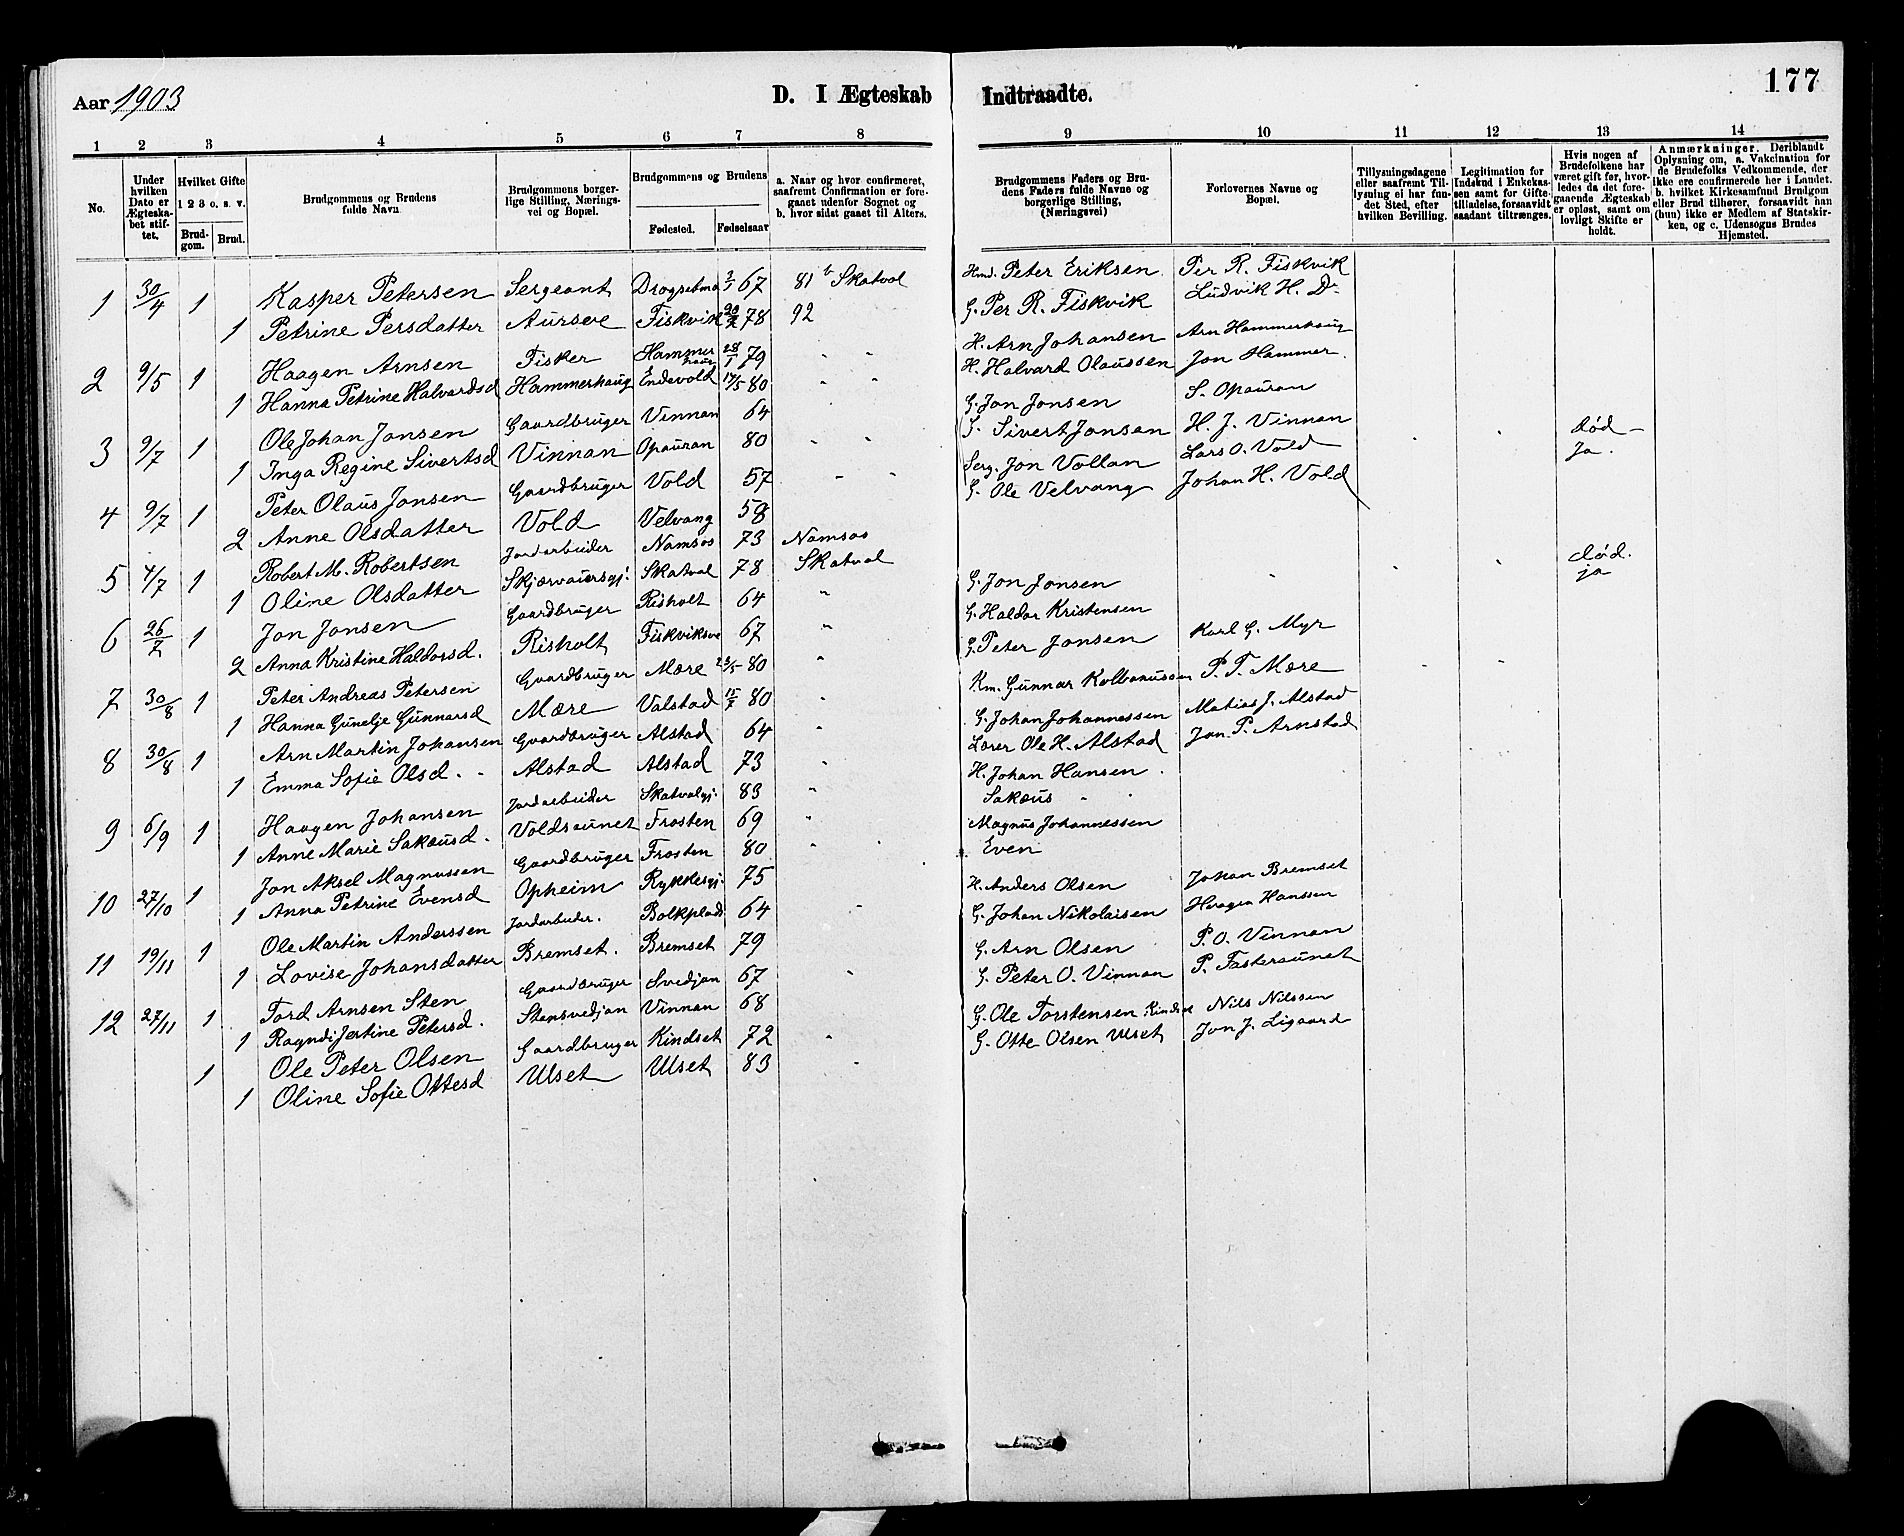 Aar 1903
D. I Ægteskab Indtraadte.
177
1 2 3 4 5 6 7 8 9 10 11 12 13 14
No.
Under hvilken Dato er Ægteskabet stiftet.
Hvilket Gifte 1 2 3 o. s. v.
Brudgom. Brud.
Brudgommens og Brudens fulde Navn.
Brudgommens borgerlige Stilling, Næringsvei og Bopæl.
Brudgommens og Brudens
Fødested. Fødselsaar
a. Naar og hvor confirmeret, saafremt Confirmation er foregaaet udenfor Sognet og b. hvor sidst gaaet til Alters.
Brudgommens Faders og Brudens Faders fulde Navne og borgerlige Stilling, (Næringsvei)
Forlovernes Navne og Bopæl.
Tillysningsdagene eller saafremt Tillysning ei har fundet Sted, efter hvilken Bevilling.
Legitimation for Indskud i Enkekassen samt for Giftetilladelse, forsaavidt saadant tiltrænges.
Hvis nogen af Brudefolkene har været gift før, hvorledes da det foregaaende Ægteskab er opløst, samt om lovligt Skifte er holdt.
Anmærkninger. Deriblandt Oplysning om, a. Vakcination for de Brudefolks Vedkommende, der ikke ere confirmerede her i Landet. b. hvilket Kirkesamfund Brudgom eller Brud tilhører, forsaavidt han (hun) ikke er Medlem af Statskirken, og c. Udensogns Brudes Hjemsted.
1 30/4 1 Kasper Petersen Sergeant 67 81 Skatval Peter Eriksen Per R. Fiskvik
1 Petrine Persdatter Fiskvik 78 92 G. Per R. Fiskvik Ludvik H. Do
2 9/5 1 Haagen Arnsen Fisker Hammerhaug 28/1 79 " " H. Arn Johansen Arn Hammerhaug
1 Hanna Petrine Halvardsd Hammerhaug Endevold 17/5 80 " " H. Halvard Olaussen Jon Hammer.
3 9/7 1 Ole Johan Jonsen Gaardbruger Vinnan 64 G. Jon Jonsen S. Opauran
1 Inga Regine Sivertsd Vinnan Opauran 80 " " Sivert Jonsen H. J. Vinnan
4 9/7 1 Peter Olaus Jonsen Gaardbruger Vold 57 " " Serg. Jon Vollan Lars O. Vold død -
2 Anne Olsdatter Vold Velvang 58 G. Ole Velvang Johan H. Vold Ja.
5 4/7 1 Robert M. Robertsen Jordarbeider Namsos 73 Namsos
1 Oline Olsdatter Skatval 78 Skatval
6 26/7 1 Jon Jonsen Gaardbruger Risholt 64 " G. Jon Jonsen død.
2 Anna Kristine Haldorsd. Risholt 67 " G. Haldor Kristensen ja
7 30/8 1 Peter Andreas Petersen Gaardbruger Mære 23/5 80 " G. Peter Jonsen Karl G. Myr
1 Hanna Gunelje Gunnarsd Mære Valstad 15/7 80 " Km. Gunnar Kolbanussen P. T. Mære
8 30/8 1 Arn Martin Johansen Gaardbruger Alstad 64 " G. Johan Johannessen Matias J. Alstad
1 Emma Sofie Olsd. Alstad Alstad 73 " Lærer Ole H. Alstad Jon P. Arnstad
9 6/9 1 Haagen Johansen Jordarbeider 83 " H. Johan Hansen
1 Anne Marie Sakæusd. Voldsaunet Frosten 69 " Sakæus "
10 27/10 1 Jon Aksel Magnussen Gaardbruger Frosten 80 " Magnus Johannessen
1 Anna Petrine Evensd Opheim 75 Even
11 19/11 1 Ole Martin Anderssen Jordarbeider. 64 " H. Anders Olsen Johan Bremset
1 Lovise Johansdatter Bremset. Bremset 79 G. Johan Nikolaisen Haagen Hanssen
12 27/11 1 Tord Arnsen Sten Gaardbruger Svedjan 67 " G. Arn Olsen P. O. Vinnan
1 Petersd. Stensvedjan Vinnan 68 G. Peter O. Vinnan P. Fastersaunet
1 Ole Peter Olsen Gaardbruger Kindset 72 " G. Ole Torstensen Kindset Nils Nilssen
1 Oline Sofie Ottesd Ulset Ulset 83 " G. Otte Olsen Ulset Jon J. Ligaard